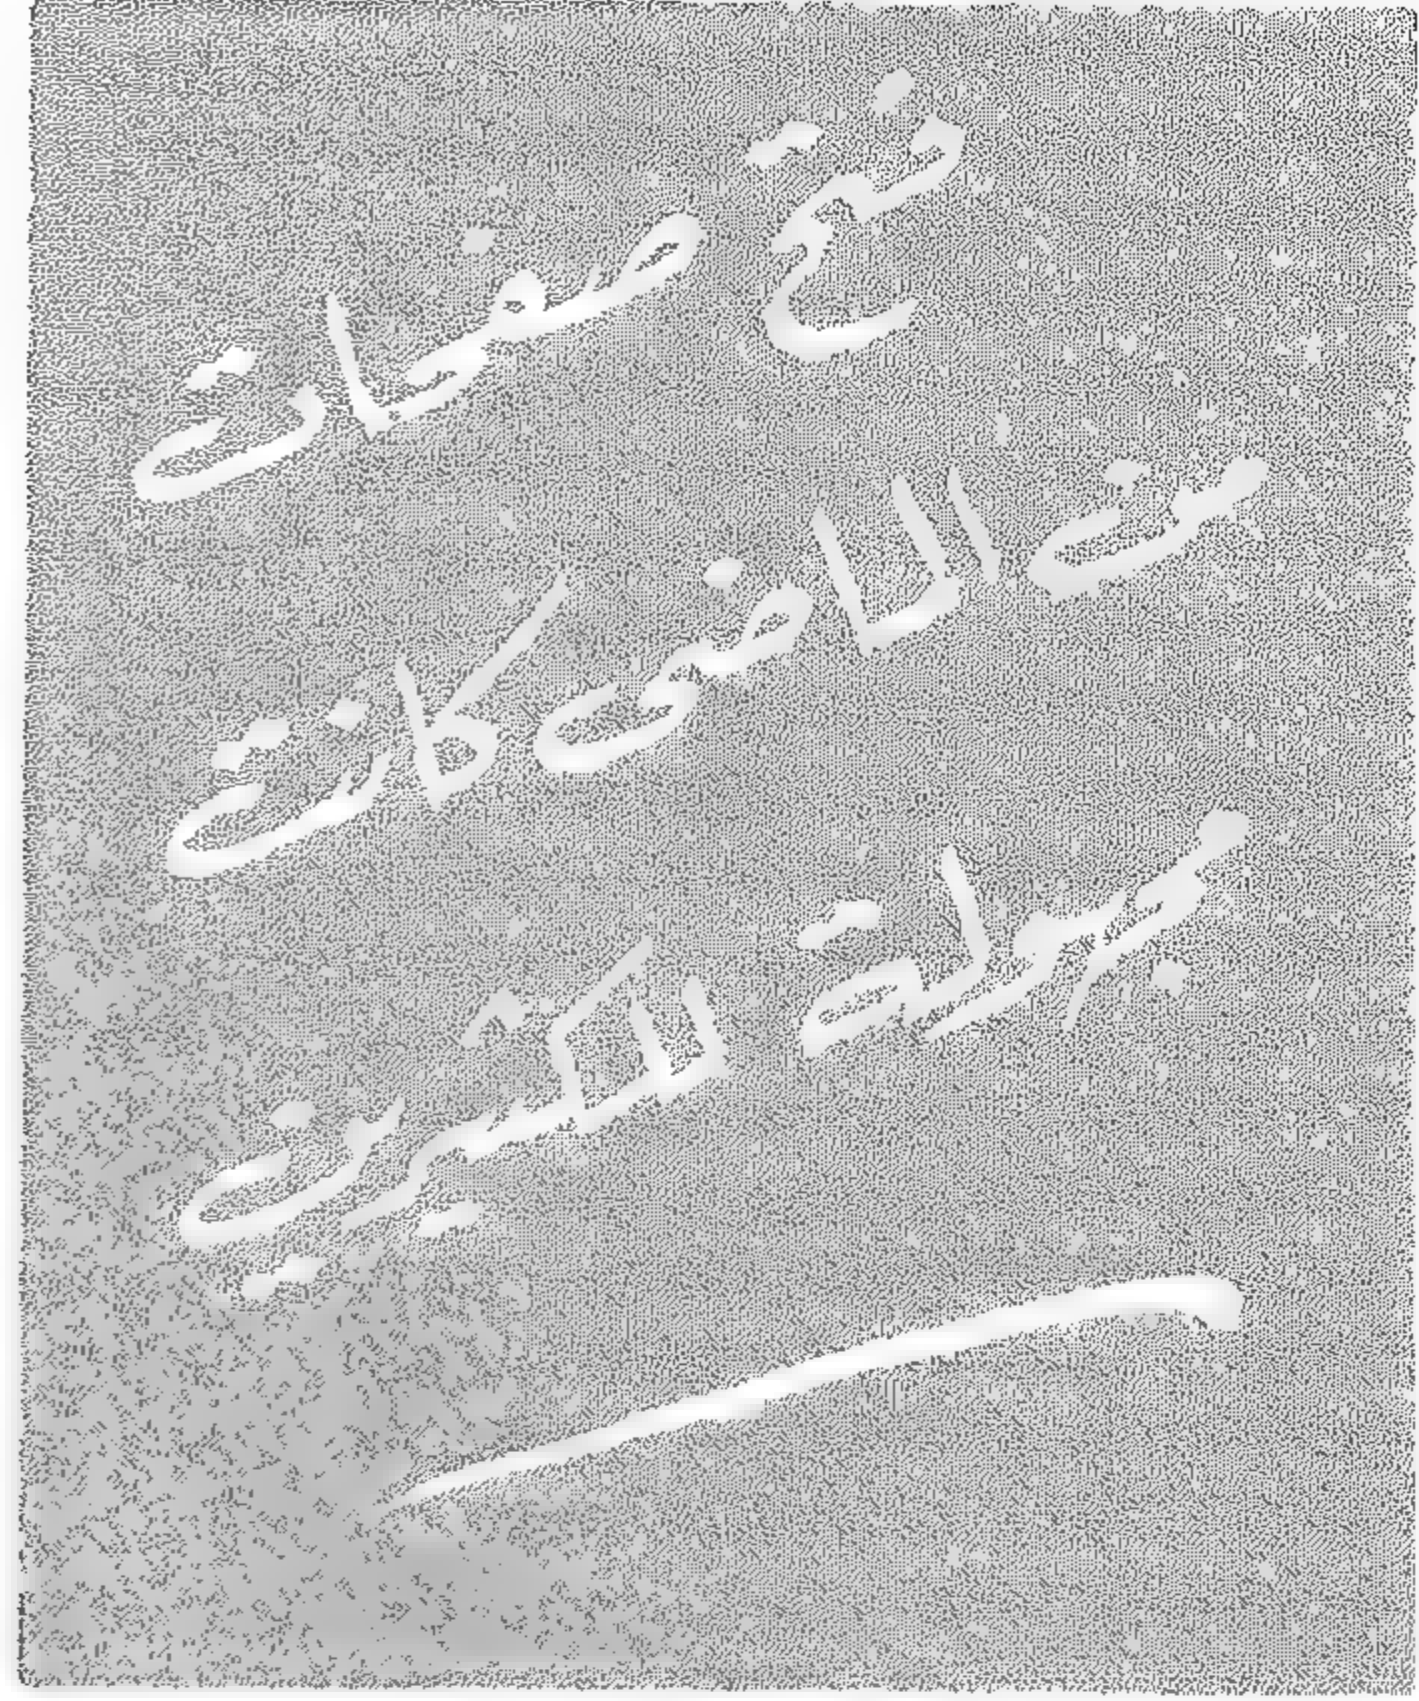 فتح صفحات
من الماضى كانت
مجهولة للكثيرين